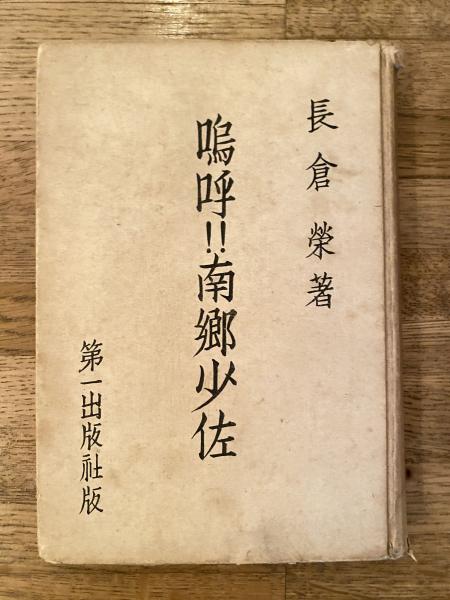 長倉榮著
嗚呼!!南郷少佐
第一出版社版